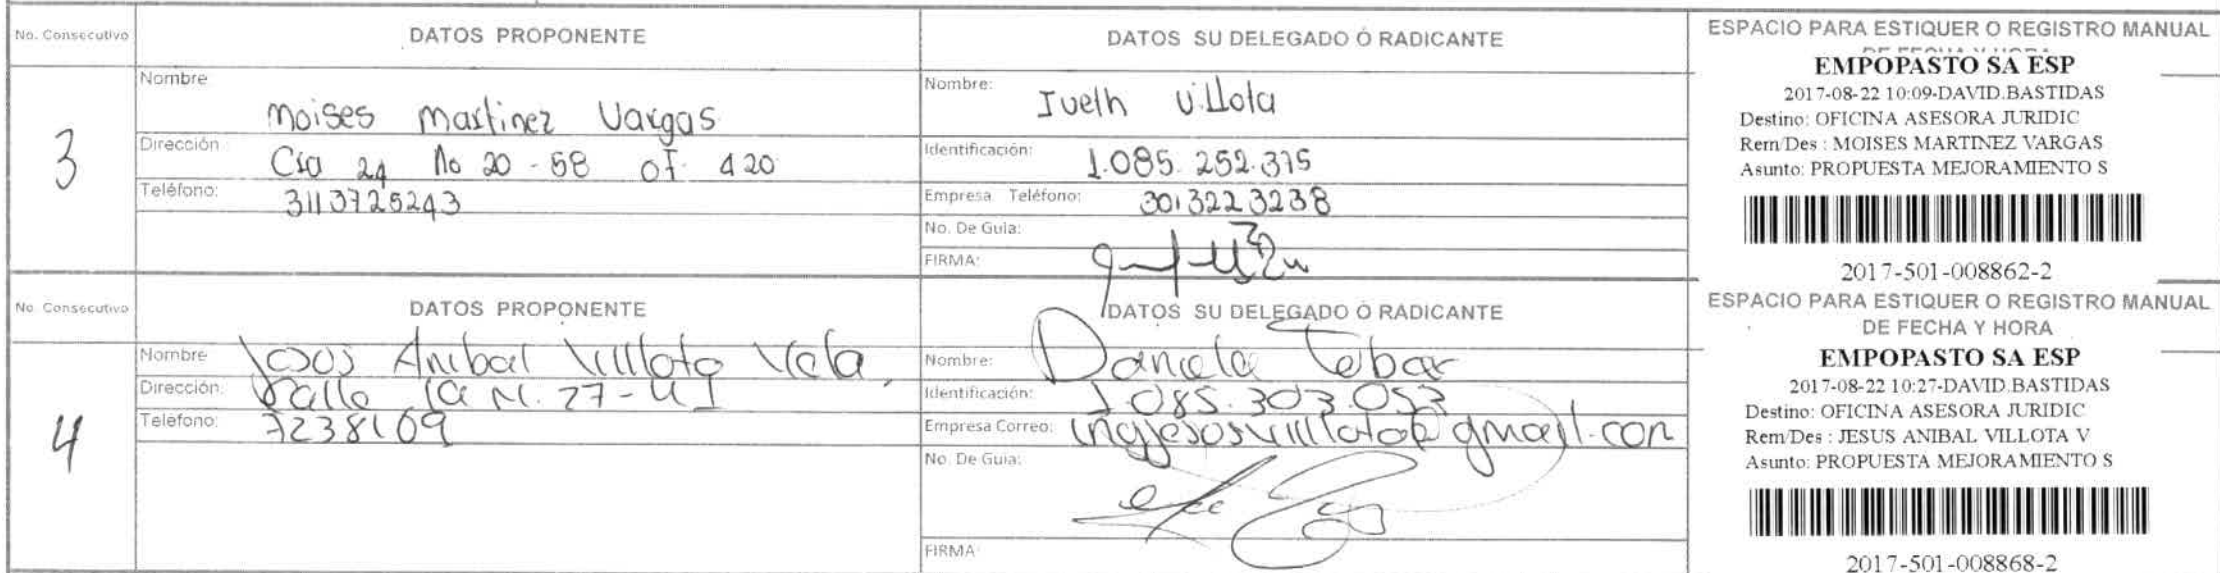 No. Consecutivo DATOS PROPONENTE DATOS SU DELEGADO Ó RADICANTE ESPACIO PARA ESTIQUER O REGISTRO MANUAL
3
Nombre Moises Martinez Vargas
Dirección Cra 24 No 20-58 of. 420
Teléfono: 3113725243
Nombre: Iveth Villota
Identificación: 1.085.252.375
Empresa Teléfono: 3013223238
No. De Guia:
FIRMA:
EMPOPASTO SA ESP
2017-08-22 10:09-DAVID.BASTIDAS
Destino: OFICINA ASESORA JURIDIC
Rem/Des : MOISES MARTINEZ VARGAS
Asunto: PROPUESTA MEJORAMIENTO S
2017-501-008862-2
No. Consecutivo DATOS PROPONENTE DATOS SU DELEGADO Ó RADICANTE ESPACIO PARA ESTIQUER O REGISTRO MANUAL
DE FECHA Y HORA
4
Nombre Jesus Anibal Villota Vela
Dirección: Calle N. 27-41
Teléfono: 7238169
Nombre: Daniela Tobar
Identificación: 1.085.303.053
Empresa Correo: ingjesusvillota@gmail.com
No. De Guia:
FIRMA:
EMPOPASTO SA ESP
2017-08-22 10:27-DAVID.BASTIDAS
Destino: OFICINA ASESORA JURIDIC
Rem/Des : JESUS ANIBAL VILLOTA V
Asunto: PROPUESTA MEJORAMIENTO S
2017-501-008868-2